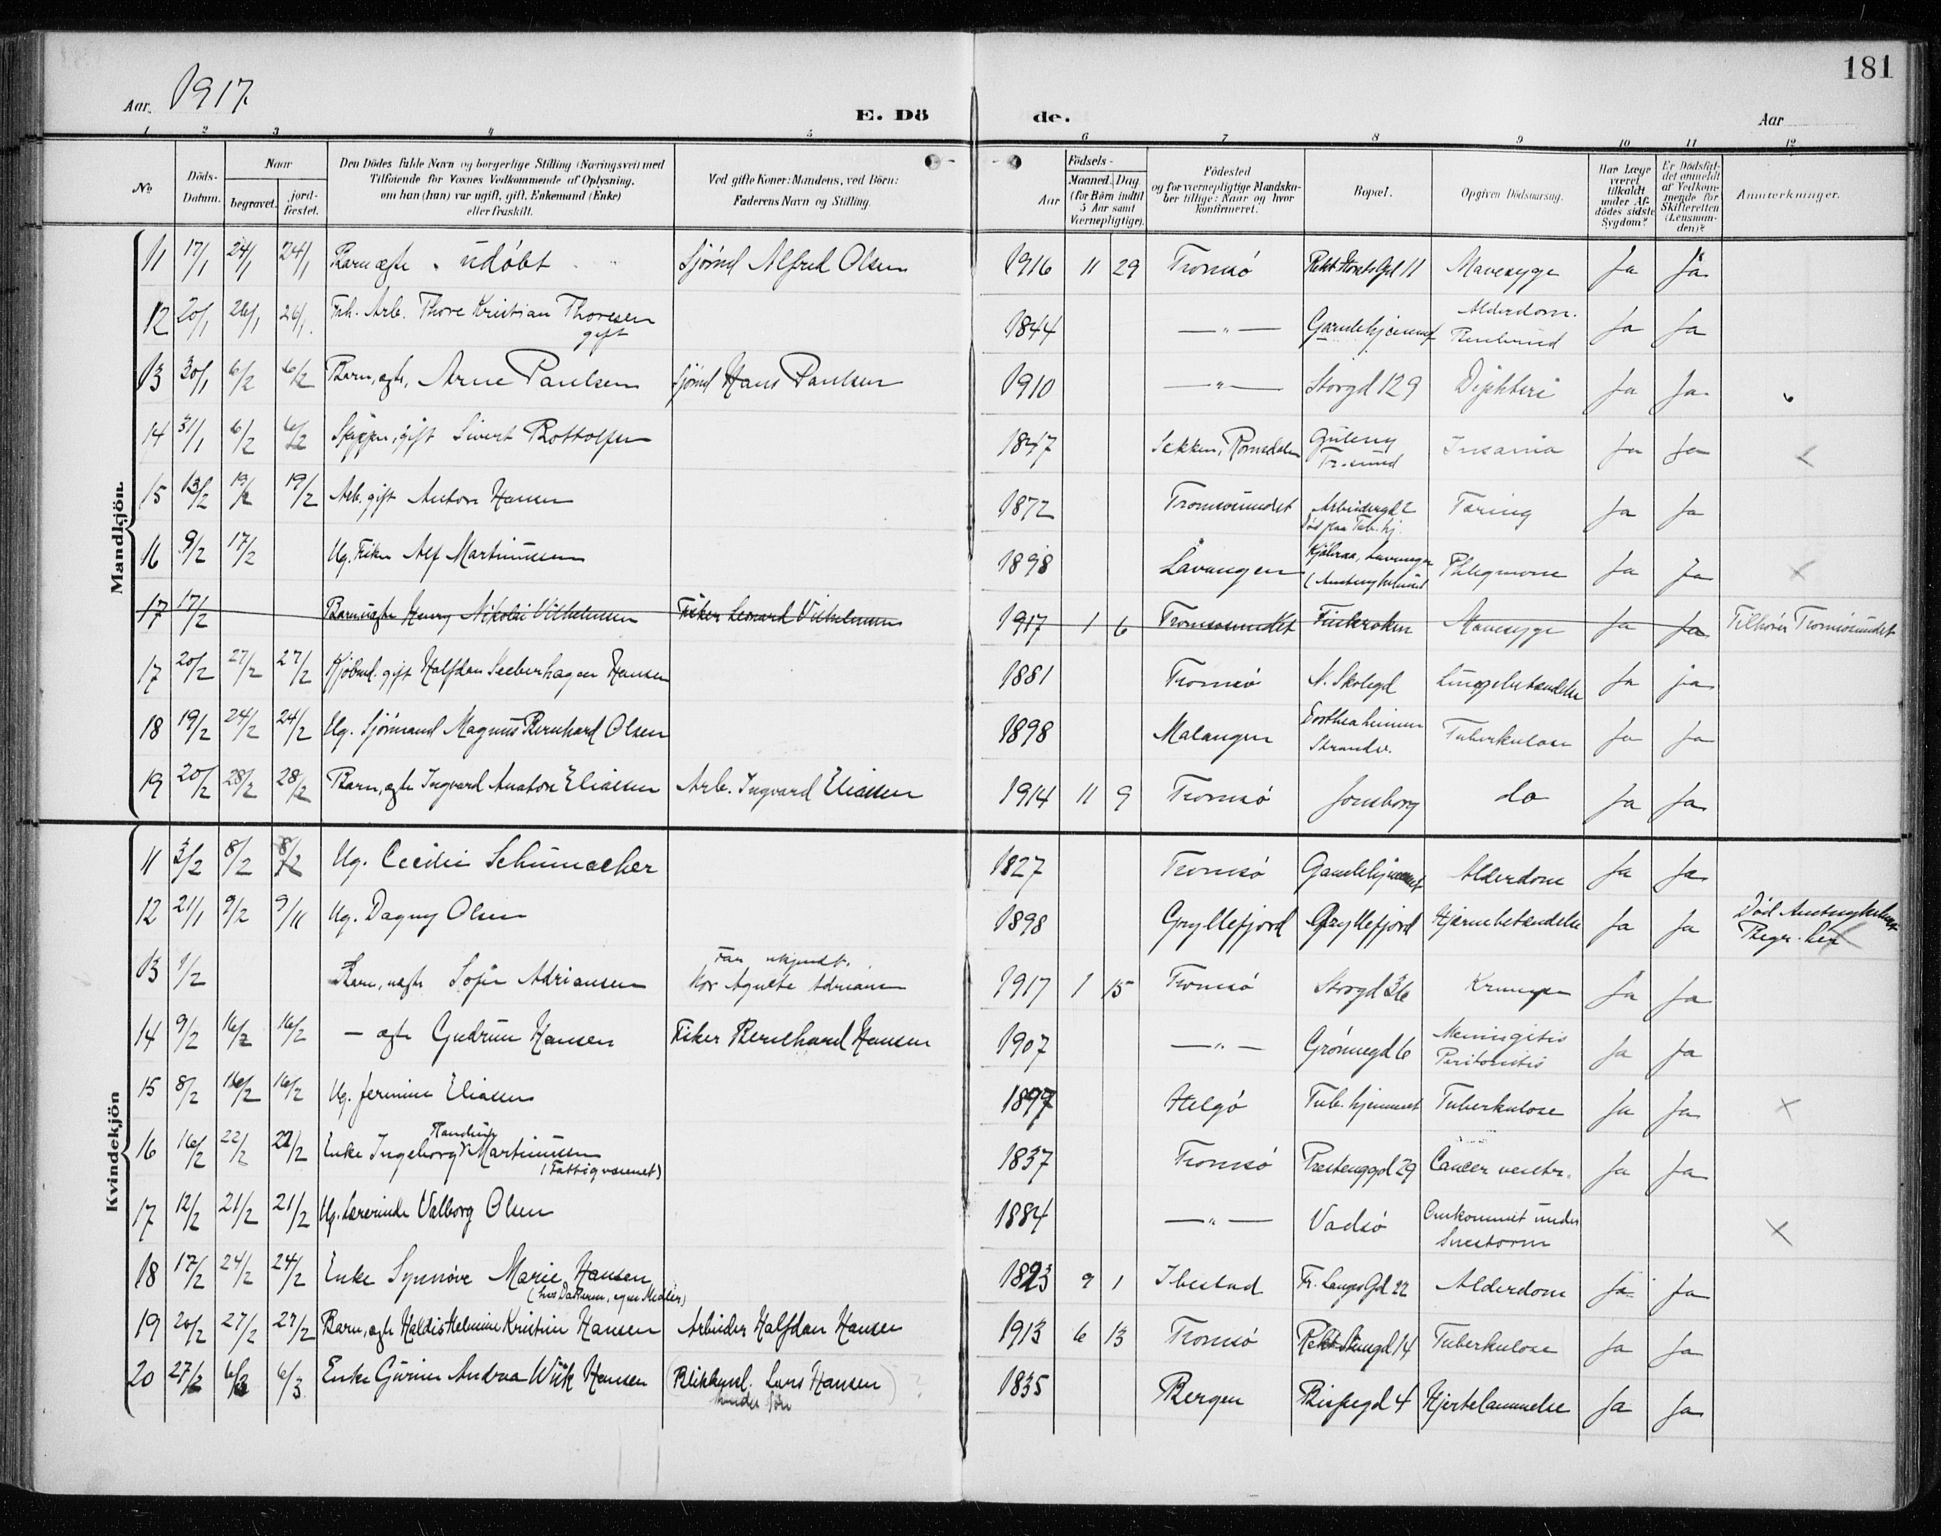 181
Aar 1917.
E. Döde.
Aar
1 2 3 4 5 6 7 8 9 10 11 12
No
Döds-Datum.
Naar
begravet.
jord-fæstet.
Den Dödes fulde Navn og borgerlige Stilling (Næringsvei) med
Tilföiende för Voxnes Vedkommende af Oplysning,
om han (hun) var ugift, gift, Enkemand (Enke)
eller fraskilt.
Ved gifte Koner: Mandens, ved Börn:
Faderens Navn og Stilling.
Födsels-
Aar
Maaned. Dag
(for Börn indtil
5 Aar samt
Værnepligtige).
Födested
og for værnepligtige Mandska-
ber tillige: Naar og hvor
konfirmeret.
Bopæl.
Opgiven Dödsaarsag.
Har Læge
været
tilkaldt
under Af-
dödes sidste
Sygdom?
Er Dödsfal-
det anmeldt
af Vedkom-
mende for
Skifteretten
(Lensman-
den)?
Anmærkninger.
Mandkjön.
11 17/1 24/1 24/1 Barn ægte. udöbt Sjömd Alfred Olsen 1916 11 29 Tromsö 11 Mavesyge Ja Ja
12 20/1 26/1 26/1 Arb. Thore Kristian Thoresen gift 1844 —"— Gamlehjemmet Alderdom. Ja Ja
13 30/1 6/2 6/2 Barn, ægte, Arne Paulsen Sjömd Hans Paulsen 1910 —"— Storgd 129 Diphteri Ja Ja
14 31/1 6/2 6/2 gift Sivert Bottolfsen 1847 Sekken, Romsdalen Tr.sund Insania Ja Ja ×
15 13/2 19/2 19/2 Arb. gift Anton Hansen 1872 Tromsösundet Arbeidergd 2 död paa Tub. hj. Tæring Ja Ja
16 9/2 17/2 Ug. Fisker Alf Martinussen 1898 Lavangen Phlegmone Ja Ja ×
17 17/2 Barn uægte Henry Nikolai Vilhelmsen Fisker Leonard Vilhelmsen 1917 1 6 Tromsösundet Finkroken Mavesyge Ja Ja Tilhörer Tromsösundet
17 20/2 27/2 27/2 Kjöbmd. gift Halfdan Seeberhagen Hansen 1881 Tromsö N. Skolegd Lungebetændelse Ja ja
18 19/2 24/2 24/2 Ug. Sjömand Magnus Bernhard Olsen 1898 Malangen Strandv. Tuberkulose Ja Ja
19 20/2 28/2 28/2 Barn, ægte Ingvard Anaton Eliassen Arb. Ingvard Eliassen 1914 11 9 Tromsö Jonsborg do Ja Ja
Kvindekjön
11 3/2 8/2 8/2 Ug. Cecilie Schumacher 1827 Tromsö Gamlehjemmet Alderdom Ja Ja
12 21/1 9/2 9/11 Ug. Dagny Olsen 1898 Gryllefjord Gryllefjord Hjernebetændelse Ja Ja Död Amtssykehuset Begr. her
13 1/2 Barn, uægte Sofie Adriansen Far ukjendt. Mor Agnete Adriansen 1917 1 15 Tromsö Storgd 36 Krampe Ja Ja
14 9/2 16/2 16/2 — ægte Gudrun Hansen Fisker Bernhard Hansen 1907 —"— Grönnegd 6 Meningitis Peritonitis Ja Ja
15 8/2 16/2 16/2 Ug. Jermine Eliassen 1897 Helgö Tub. hjemmet Tuberkulose Ja Ja ×
16 16/2 22/2 22/2 Enke Ingeborg Martinussen (Fattigvæsenet) 1837 Tromsö Prestenggd 29 Cancer ventr. Ja Ja
17 12/2 21/2 21/2 Ug. Lærerinde Valborg Olsen 1884 —"— Vadsö Omkommet under Snestorm ×
18 17/2 24/2 24/2 Enke Synnöve Marie Hansen (hos Datteren, egne Midler) 1823 9 1 Ibestad Fr. Langes Gd 22 Alderdom Ja Ja
19 20/2 27/2 27/2 Barn, ægte Haldis Helmine Kristine Hansen Arbeider Halfdan Hansen 1913 6 13 Tromsö 14 Tuberkulose Ja Ja
20 27/2 6/3 6/3 Enke Andrea Wiik Hansen (Blikksml. Lars Hansen) 1835 Bergen Bispegd 4 Hjertelammelse Ja Ja